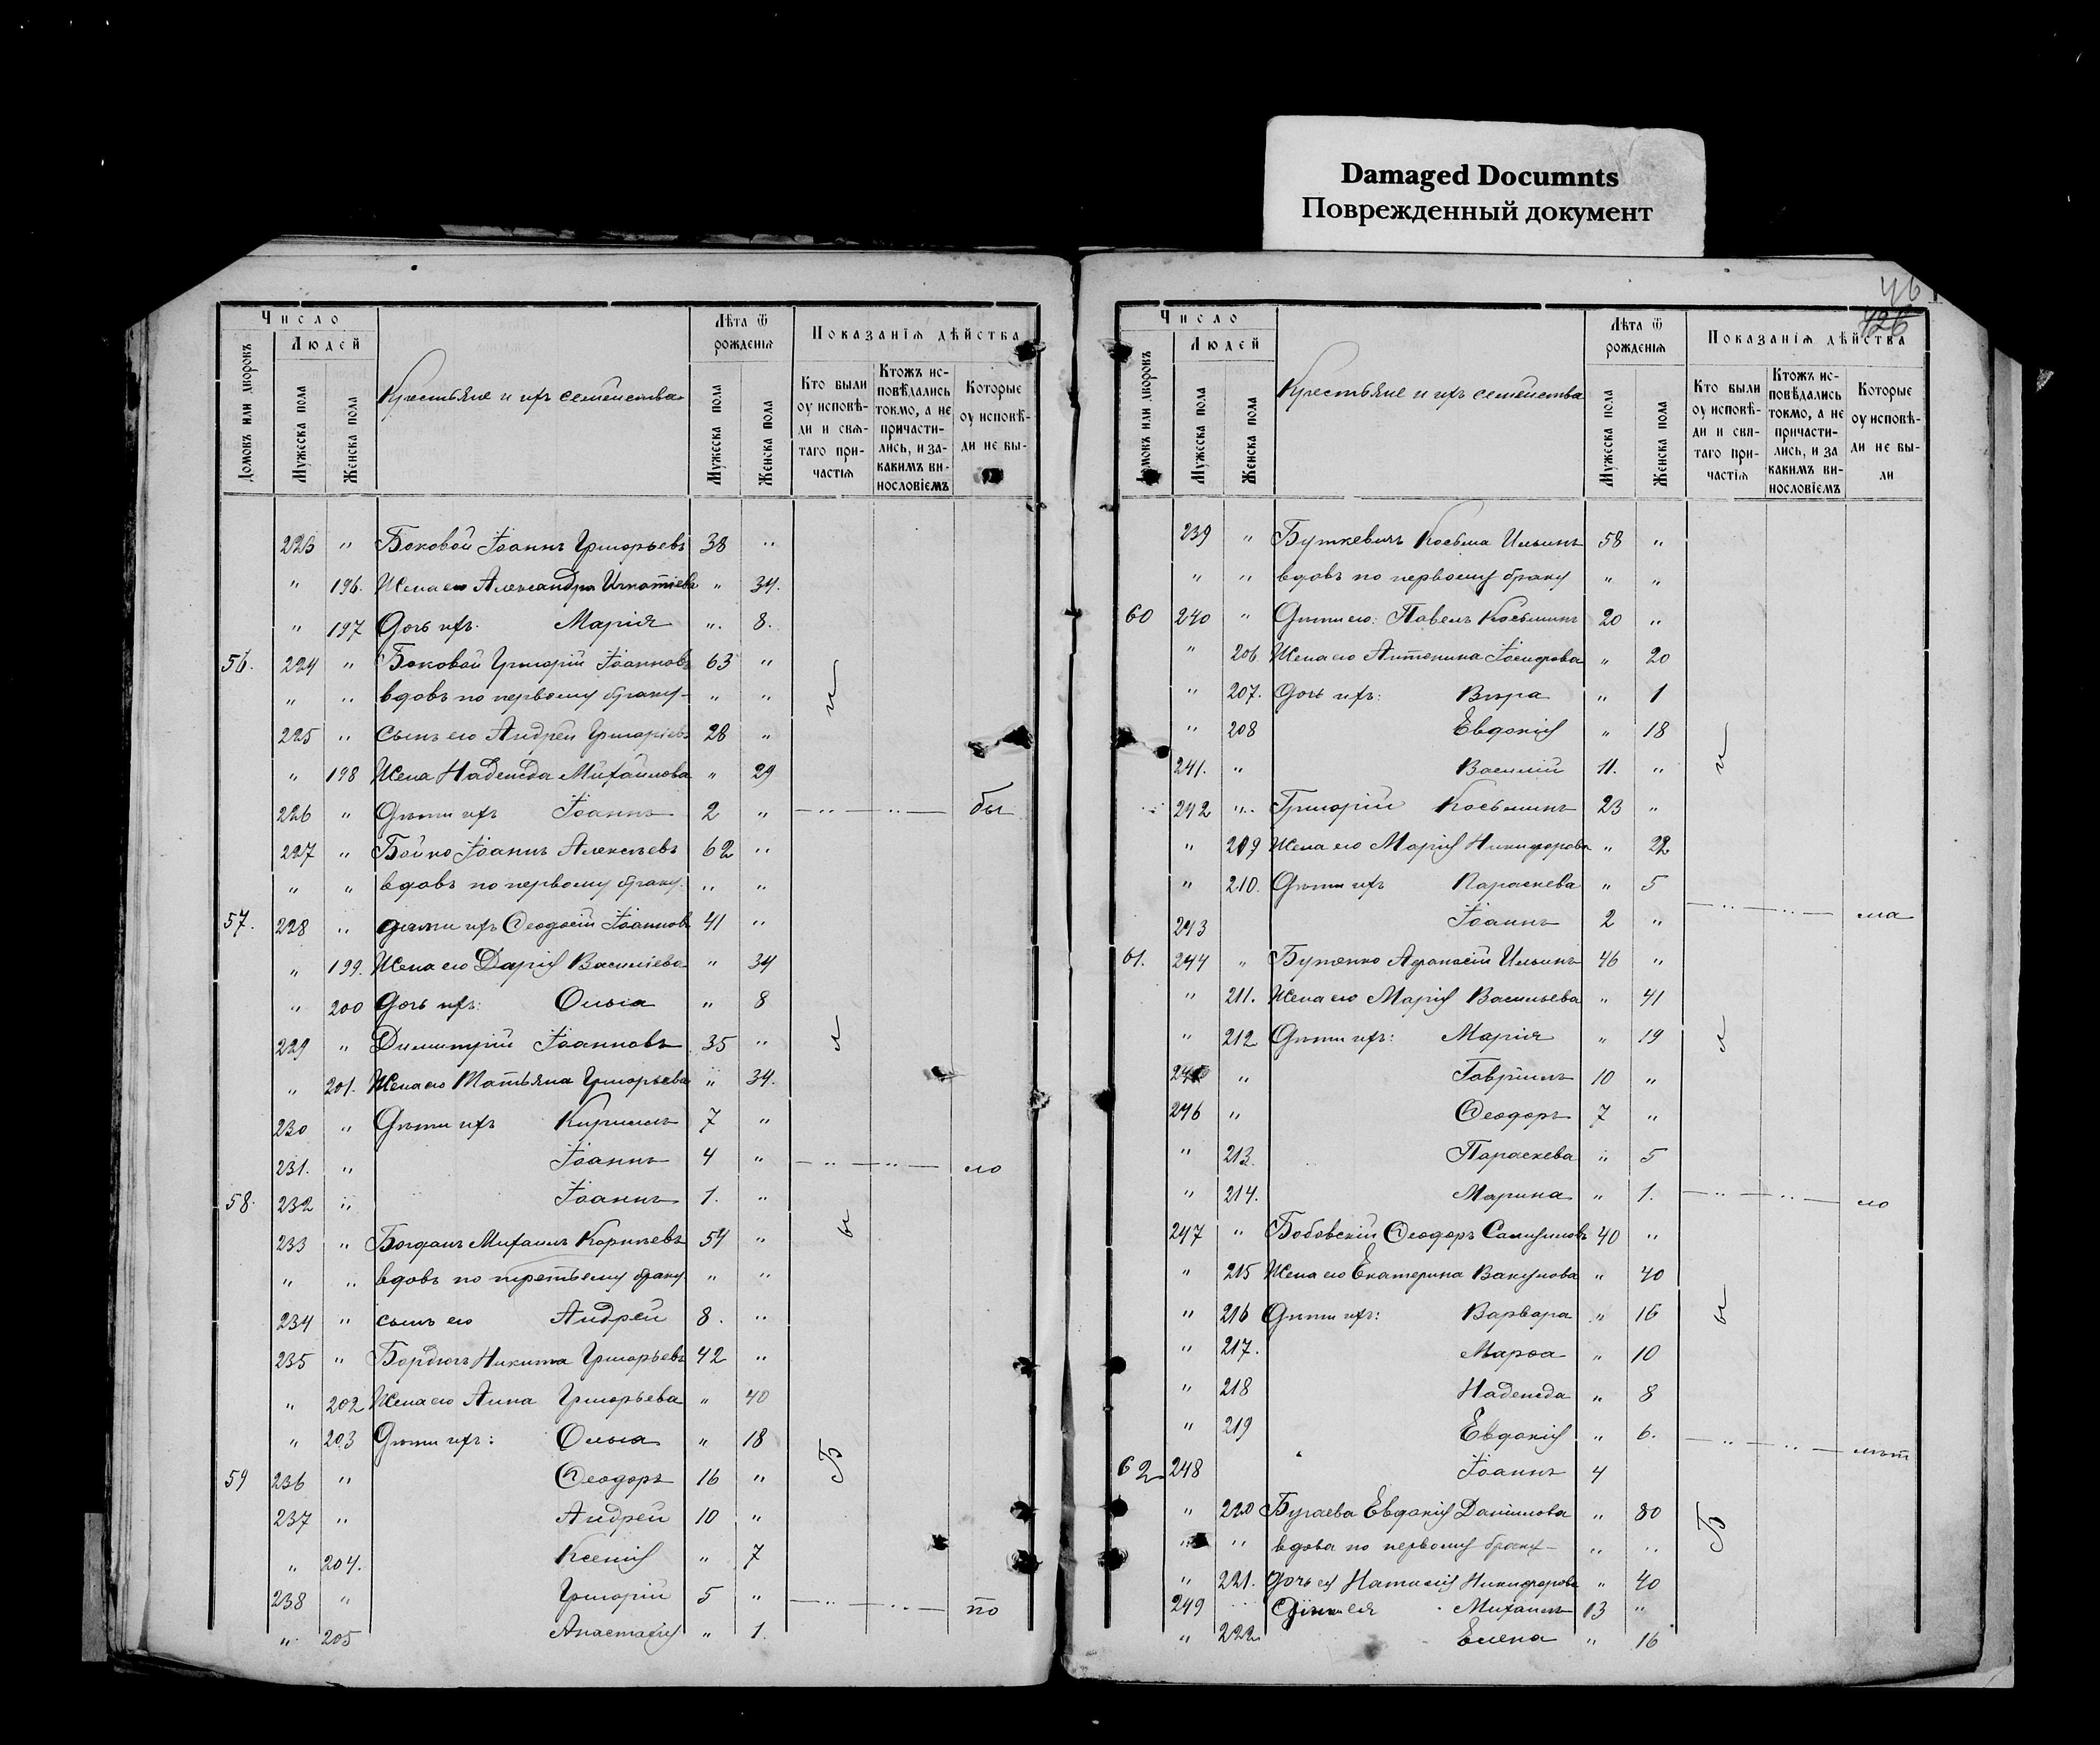 Damaged Documnts
Поврежденный документ
46
426
Число
Людей
Домовъ или дворовъ
Мужеска пола
Женска пола
Крестьяне и ихъ семейства
Лѣта ѿ рожденія
Мужеска пола
Женска пола
Показанія дѣйства
Кто были оу исповѣ-
ди и свя-
таго при-
частія
Ктожъ ис-
повѣдались
токмо, а не
причасти-
лись, и за-
какимъ ви-
нословіемъ
Которые
оу исповѣ-
ди не бы-
223 " Боковой Іоаннъ Григорьевъ 38 "
" 196. Жена его Александра Игнатіева " 34.
" 197 Дочь ихъ. Марія " 8.
56. 224 " Боковой Григорій Іоанновъ 63 "
" " вдовъ по первому браку " "
225 " Сынъ его Андрей Григоріевъ 28 "
" 198 Жена Надежда Михайлова " 29
226 " Дѣти ихъ Іоаннъ 2 " — " — " — бы
227 " Бойко Іоаннъ Алексѣевъ 62 "
" " вдовъ по первому браку " "
57. 228 " дѣти ихъ Ѳеодосій Іоанновъ 41 "
" 199. Жена его Дарія Василіева " 34
" 200 Дочь ихъ: Ольга " 8
229 " Димитрій Іоанновъ 35 "
" 201. Жена его Татьяна Григорьева " 34.
230 " Дѣти ихъ Кириллъ 7 "
231. " Іоаннъ 4 " — " — " — ло
58. 232 " Іоаннъ 1. "
233 " Богданъ Михаилъ Корнѣевъ 54 "
" " вдовъ по третьему браку " "
234 " сынъ его Андрей 8. "
235 " Бордюгъ Никита Григорьевъ 42 "
" 202 Жена его Анна Григорьева " 40
" 203 Дѣти ихъ: Ольга " 18
59 236 " Ѳеодоръ 16 "
237 " Андрей 10 "
" 204. Ксенія " 7
238 " Григорій 5 " — " — " — по
" 205 Анастасія " 1.
Число
Людей
Домовъ или дворовъ
Мужеска пола
Женска пола
Крестьяне и ихъ семейства
Лѣта ѿ рожденія
Мужеска пола
Женска пола
Показанія дѣйства
Кто были
оу исповѣ-
ди и свя-
таго при-
частія
Ктожъ ис-
повѣдались
токмо, а не
причасти-
лись, и за
какимъ ви-
нословіемъ
Которые
оу исповѣ-
ди не бы-
ли
239 " Буткевичъ Косьма Ильинъ 58 "
" " вдовъ по первому браку " "
60 240 " Дѣти его: Павелъ Косьминъ 20 "
" 206 Жена его Антонина Іосифова " 20
" 207. Дочь ихъ: Вѣра " 1
" 208 Евдокія " 18
241. " Василій 11. "
242 " Григорій Косьминъ 23 "
" 209 Жена его Марія Никифорова " 22
" 210. Дѣти ихъ Параскева " 5
243 Іоаннъ 2 " — " — " — ла
61. 244 " Бутенко Аѳанасій Ильинъ 46 "
" 211. Жена его Марія Васильева " 41
" 212 Дѣти ихъ: Марія " 19
" Гавріилъ 10 "
246 " Ѳеодоръ 7 "
" 213. Параскева " 5
" 214. Марина " 1. — " — " — ло
247 " Бобовскій Ѳеодоръ Самуиловъ 40 "
" 215 Жена его Екатерина Вакулова " 40
" 216 Дѣти ихъ: Варвара " 16
" 217. Марѳа " 10
" 218 Надежда " 8
" 219 Евдокія " 6. — " — " — лѣт
62 248 Іоаннъ 4
" 220 Бугаева Евдокія Даніилова " 80
" " вдова по первому браку " "
" 221. Дочь ея Наталія Никифорова " 40
249 ея Михаилъ 13 "
" 222 Елена " 16